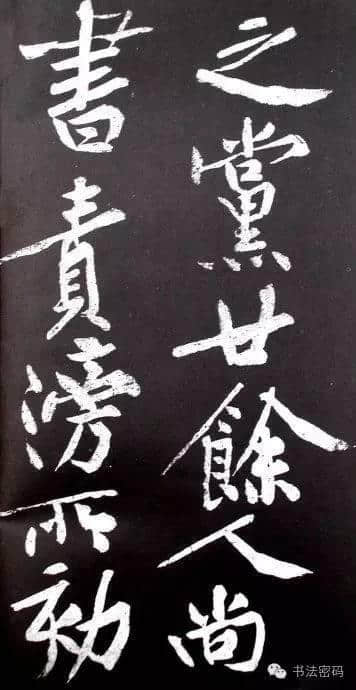 之黨廿餘人尚
書責滂所劾
书法密码